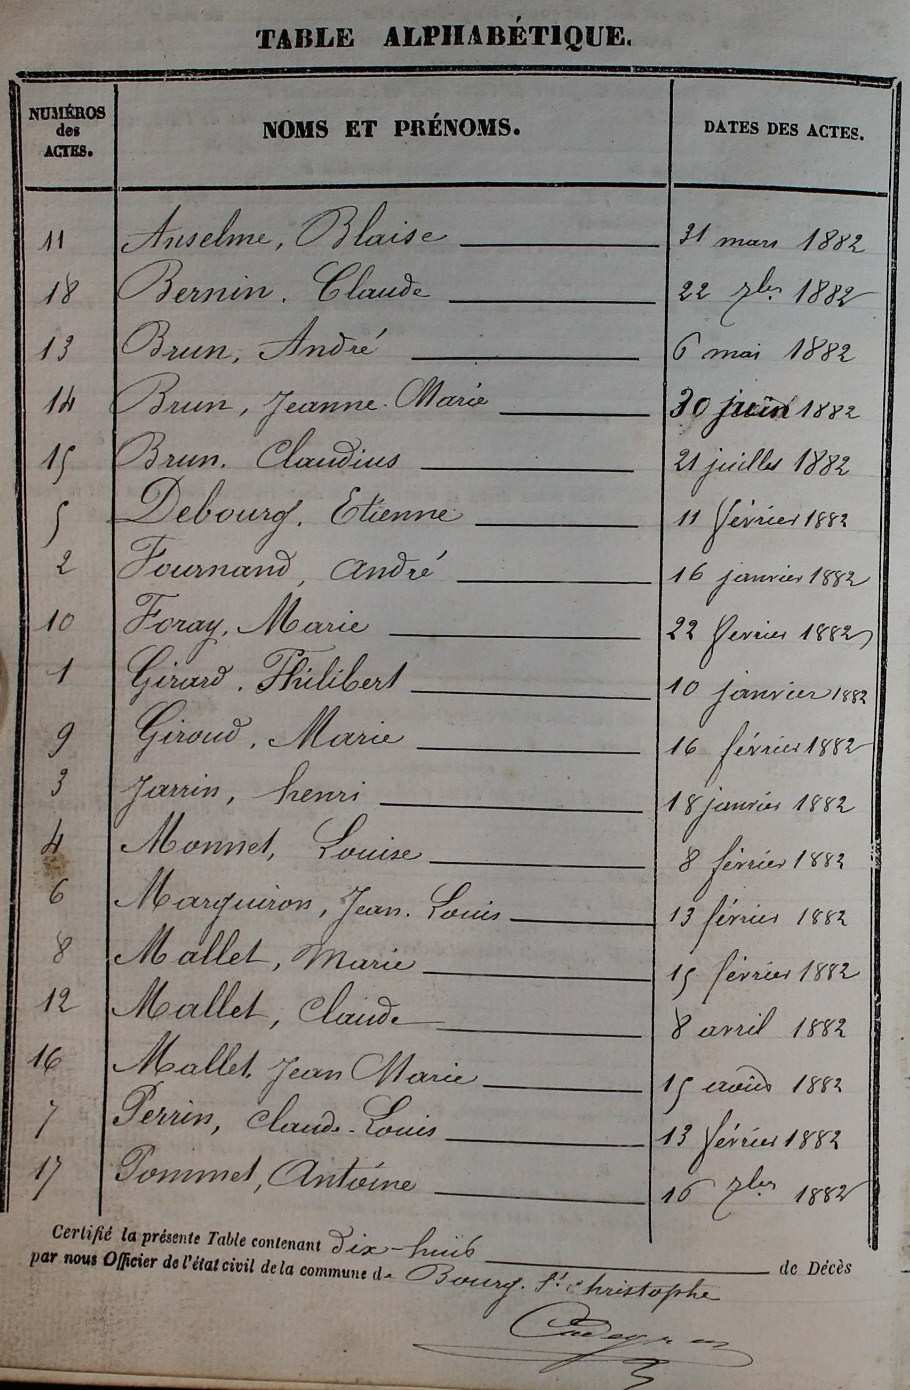 TABLE ALPHABÉTIQUE.
NUMÉROS des ACTES. NOMS ET PRÉNOMS. DATES DES ACTES.
11 Anselme, Blaise 31 mars 1882
18 Bernin, Claude 22 7bre 1882
13 Brun, André 6 mai 1882
14 Brun, Jeanne-Marie 30 juin 1882
15 Brun, Claudius 21 juillet 1882
5 Debourg, Etienne 11 février 1882
2 Fournand, André 16 janvier 1882
10 Foray, Marie 22 février 1882
1 Girard, Philibert 10 janvier 1882
9 Giroud, Marie 16 février 1882
3 Jarrin, henri 18 janvier 1882
4 Monnet, Louise 8 février 1882
6 Marguiron, Jean-Louis 13 février 1882
8 Mallet, Marie 15 février 1882
12 Mallet, Claude 8 avril 1882
16 Mallet, Jean Marie 15 août 1882
7 Perrin, Claude-Louis 13 février 1882
17 Pommet, Antoine 16 7bre 1882
Certifié la présente Table contenant dix-huit de Décès
par nous Officier de l'état civil de la commune de Bourg-St Christophe